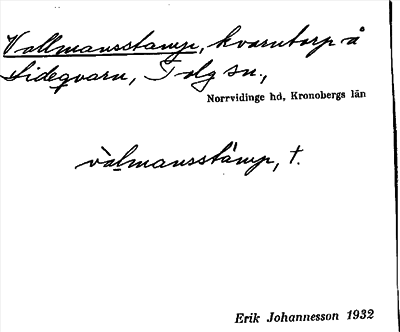 Vallmansstamp, kvarntorp å
Sideqvarn, Tolg sn.,
Norrvidinge hd, Kronobergs län
vàlmansstàmp, t.
Erik Johannesson 1932